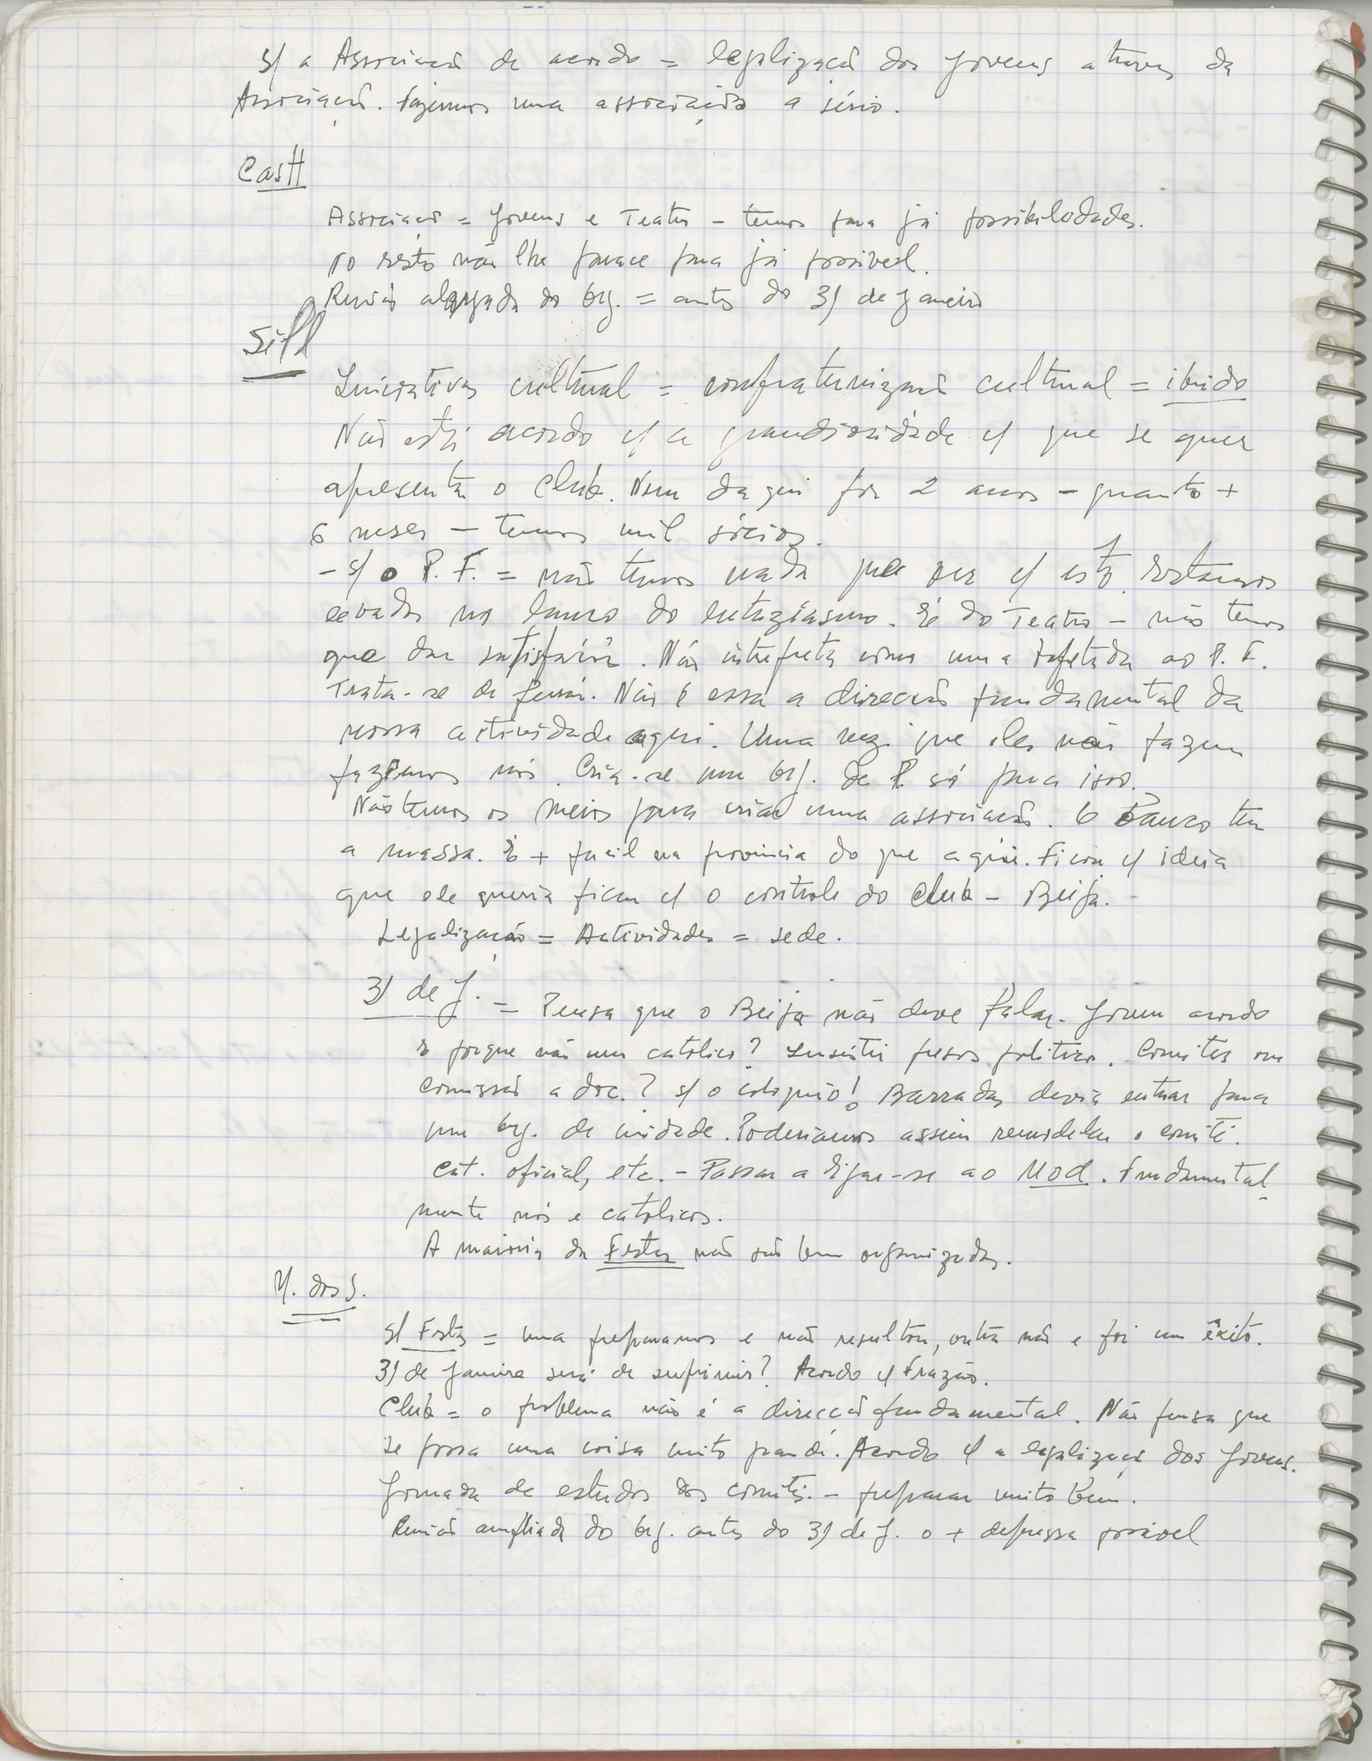 s/ a Associação de acordo = legalização dos jovens atraves da
Associação. Fazemos uma associação a sério.
Castt
Associação = Jovens e Teatro - temos para já possibilidades.
no resto não lhe parece para já possivel.
Reunião alargada do org. = antes do 31 de Janeiro
Sill
Iniciativas cultural = confraternização cultural = ibido
Não está acordo c/ a grandiosidade c/ que se quer
apresentar o Club. Nem daqui por 2 anos - quanto +
6 meses - temos mil sócios.
- s/ o P. F. = não temos nada que ver c/ isto. Estamos
levados no do entuziasmo. É do Teatro - não temos
que dar satisfação. Não interpreta como uma ao P. F.
Trata-se de. Não é essa a direcção fundamental da
nossa actividade aqui. Uma vez que eles não fazem
fazemos nós. Cria-se um org. de P. só para isso.
Não temos os meios para criar uma associação. O Banco tem
a massa. É + facil na provincia do que aqui. Ficou c/ ideia
que ele queria ficar c/ o controle do Club - Beija.
Legalização = Actividades = sede.
31 de J. = Pensa que o Beija não deve falar. Jovem acordo
e porque não um católico? Insistir presos politicos. Comites ou
comissão a doc.? s/ o coloquio! Barradas devia entrar para
um org. de unidade. Poderiamos assim remodelar o comité.
cat. oficial, etc. - Passar a ligar-se ao Mod. Fundamental-
mente nós e católicos.
A maioria da Festas não são bem organizadas.
M. dos S.
s/ Festas = uma preparamos e não resultou, outra não e foi um êxito.
31 de Janeiro será de suprimir? Acordo c/ Frazão.
Club = o problema não é a direcção fundamental. Não pensa que
se possa uma coisa muito grande. Acordo c/ a legalização dos jovens.
Jornada de estudos dos comités. - preparar muito bem.
Reunião ampliada do org. antes do 31 de J. o + depressa possivel